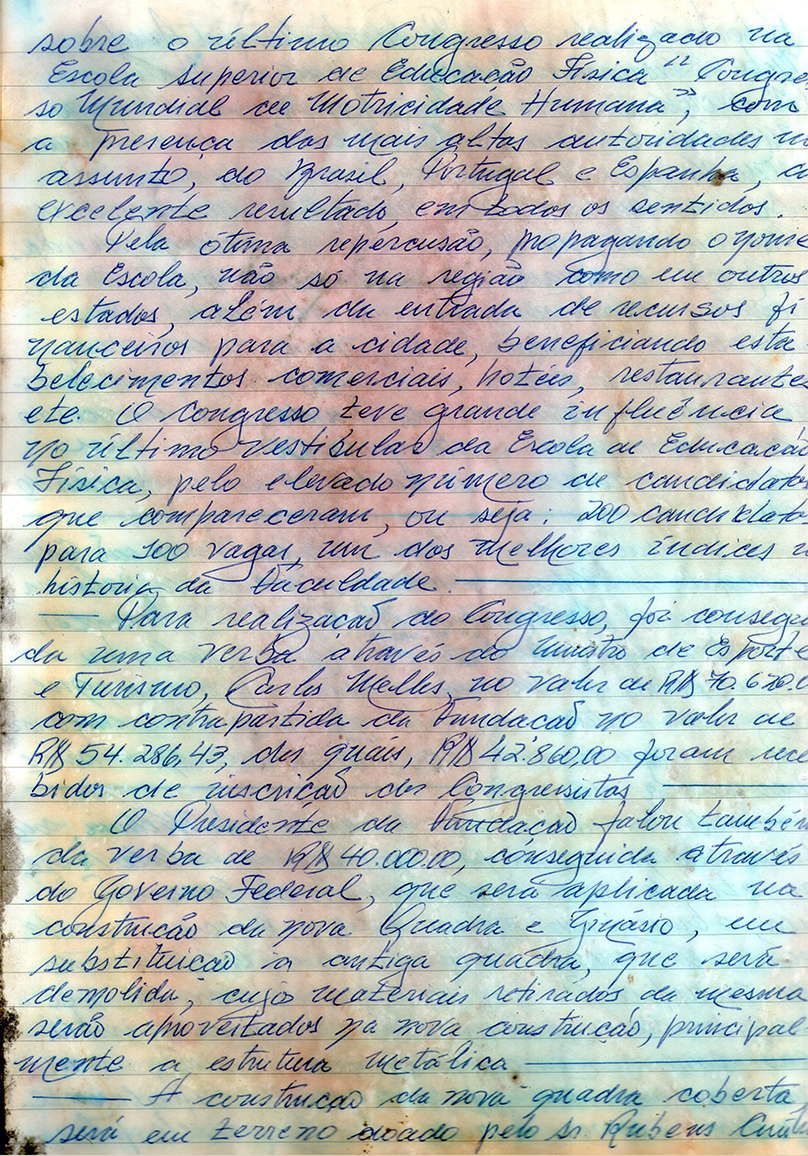 sobre o último Congresso realizado na
Escola Superior de Educação Física "Congre
so Mundial de Motricidade Humana", com
a presença das mais altas autoridades n
assunto, do Brasil, Portugal e Espanha, 
excelente resultado, em todos os sentidos.
Pela ótima repercusão, propagando o nome
da Escola, não só na região como em outros
estados, além da entrada de recursos fi
nanceiros para a cidade, beneficiando esta
belecimentos comerciais, hotéis, restaurante
etc. O Congresso teve grande influência
no último vestibular da Escola de Educação
Física, pelo elevado número de candidatos
que compareceram, ou seja: 200 candidato
para 100 vagas, um dos melhores índices
historia da Faculdade.
Para realização do Congresso, foi consegui
da uma verba através do Ministro de Esporte
e Turismo, Carlos Melles, no valor de R$
com contrapartida da Fundação no valor de
R$ 54.286,43, dos quais, R$ 42.860,00 foram rece
bidos de inscrição dos Congressistas
O Presidente da Fundação falou também
da verba de R$ 40.000,00, conseguida através
do Governo Federal, que será aplicada na
construção da nova Quadra e Ginásio, em
substituição à antiga quadra, que será
demolida; cujo materiais retirados da mesma
serão aproveitados na nova construção, principal
mente a estrutura metálica
A construção da nova quadra coberta
será em terreno doado pelo Sr. Rubens